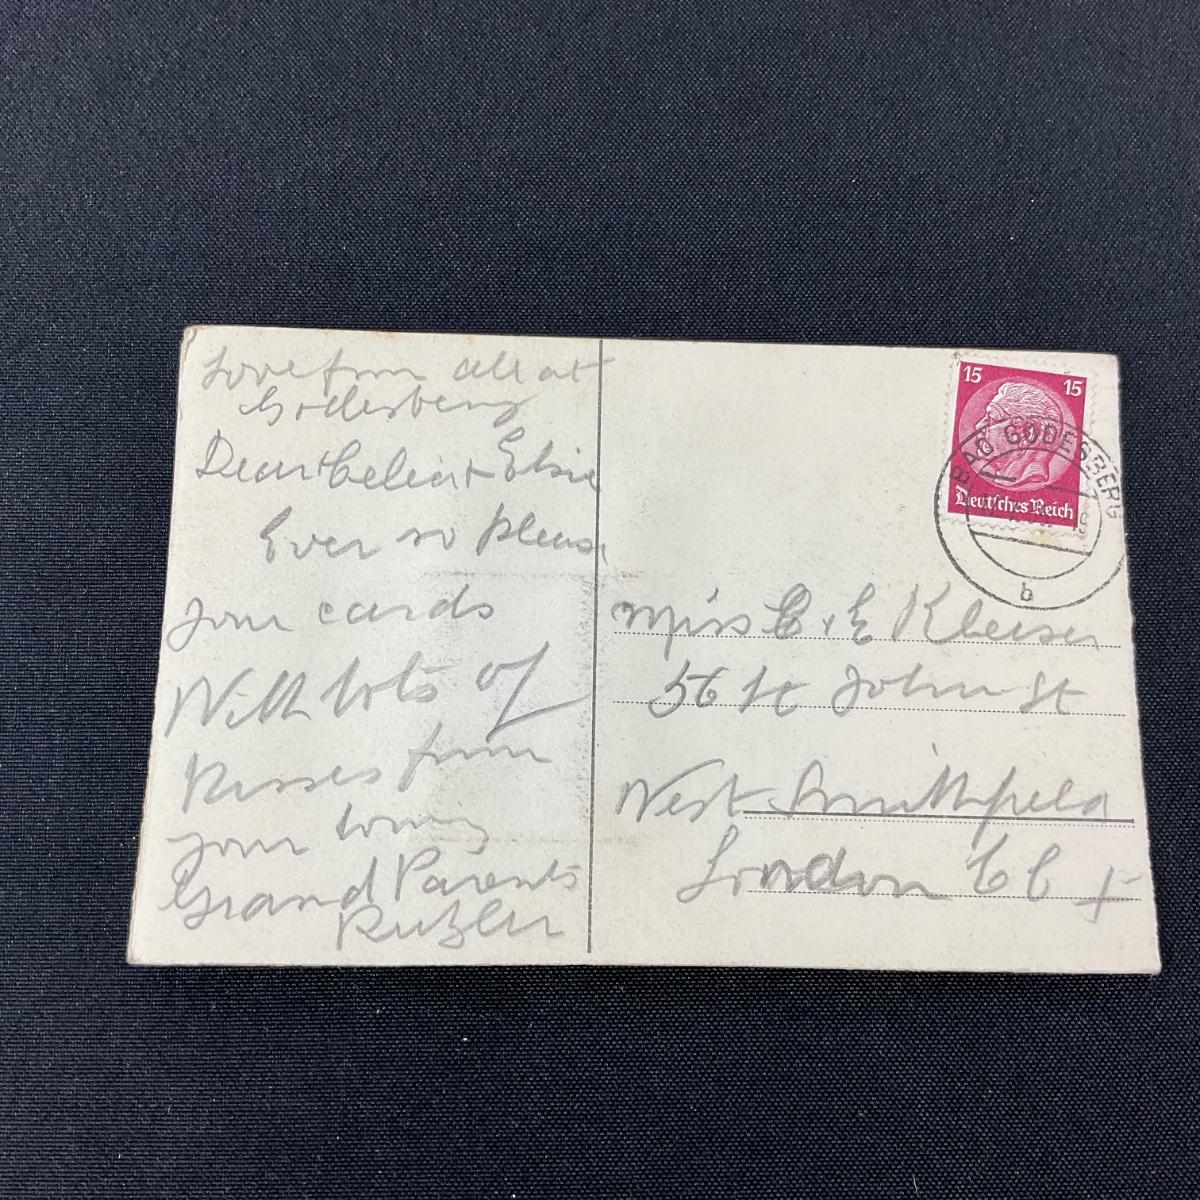 Love from all at
Godesberg
Dear Celia + Elsie
Ever so pleased
your cards
With lots of
Kisses from
your loving
Grand Parents
15 15
BAD GODESBERG
Deutsches Reich
b
Miss C + E
56 St John St
West Smithfield
London E C 1